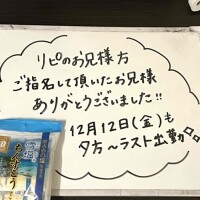 リピのお兄様方
ご指名して頂いたお兄様
ありがとうございました!!
12月12日(金)も
夕方〜ラスト出勤